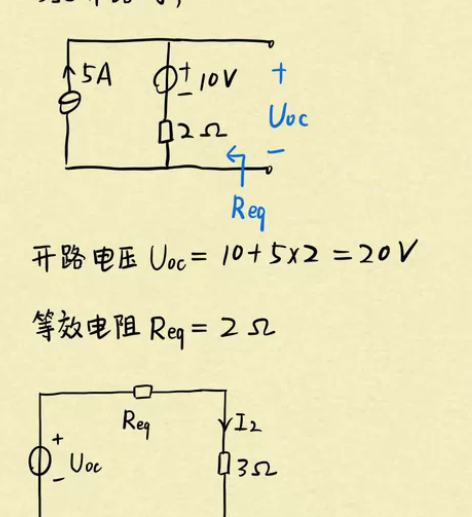 5A
+
10V
-
2Ω
+
Uoc
-
Req
开路电压 Uoc = 10+5×2 = 20V
等效电阻 Req = 2Ω
Req
I2
+
Uoc
-
3Ω